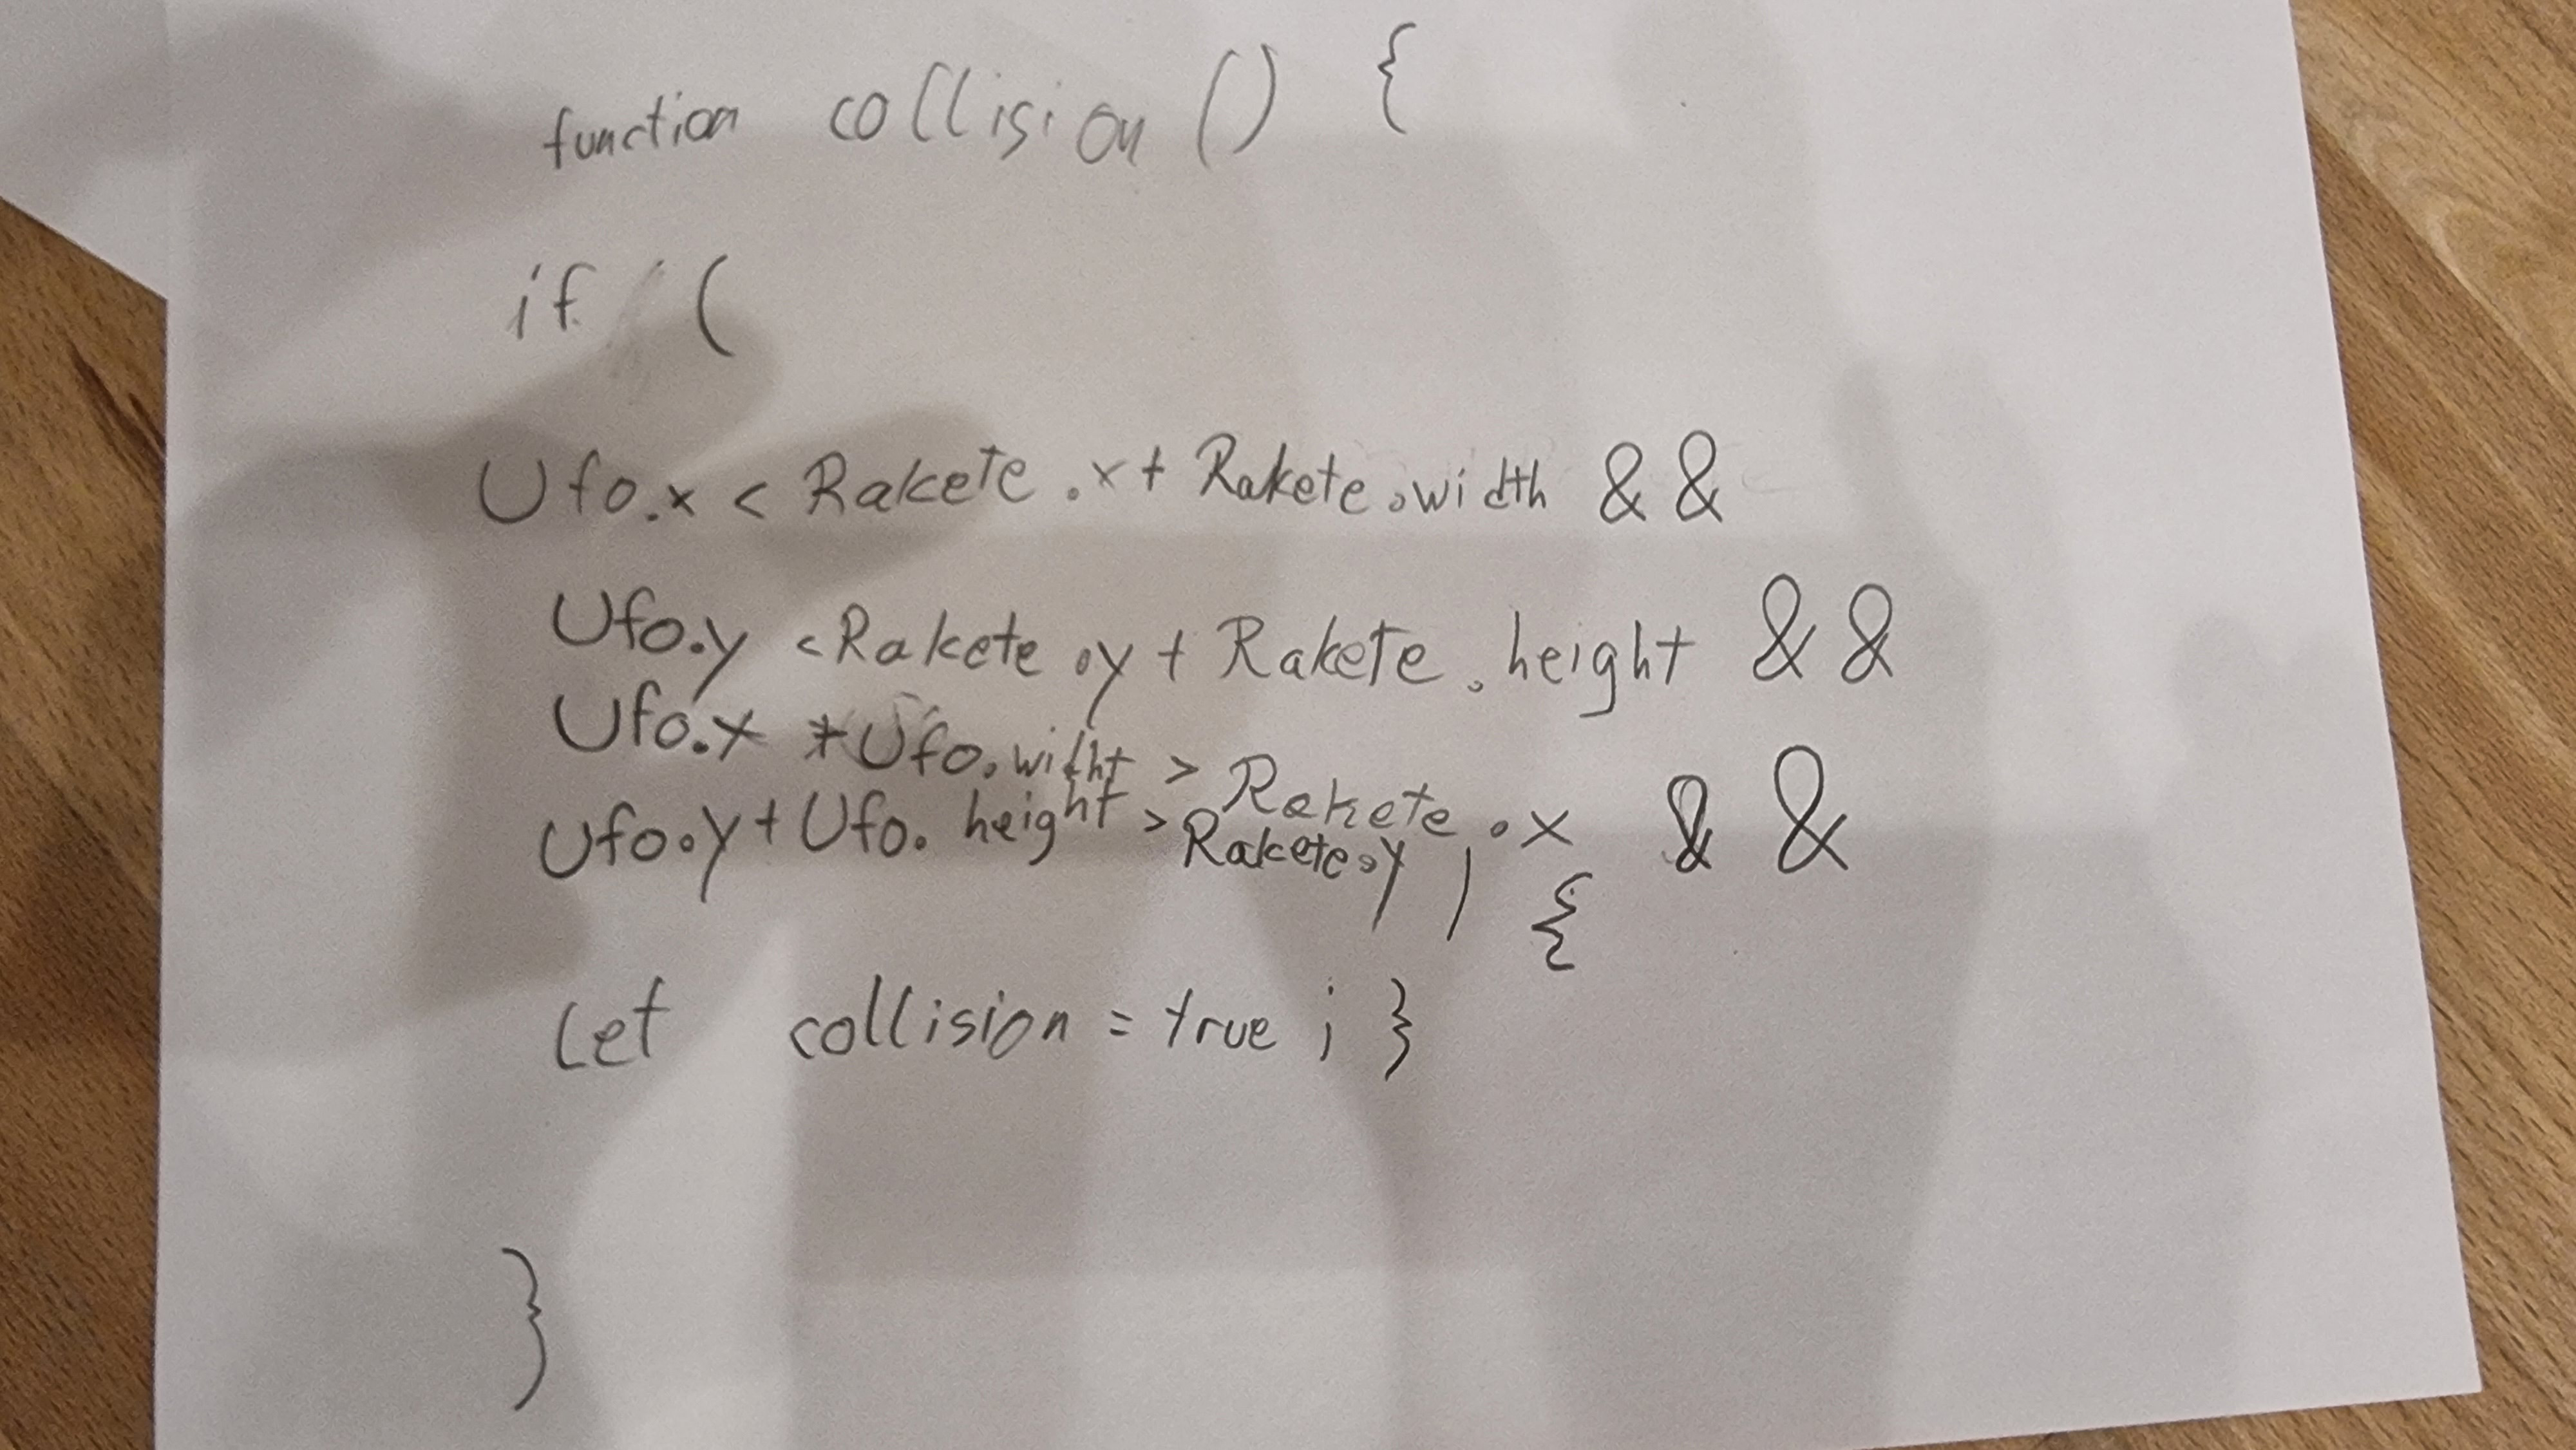 function collision () {
if (
Ufo.x < Rakete .x + Rakete.width &&
Ufo.y < Rakete .y + Rakete.height &&
Ufo.x + Ufo.widht > Rakete.x &&
Ufo.y + Ufo.height > Rakete.y ) {
let collision = true ; }
}